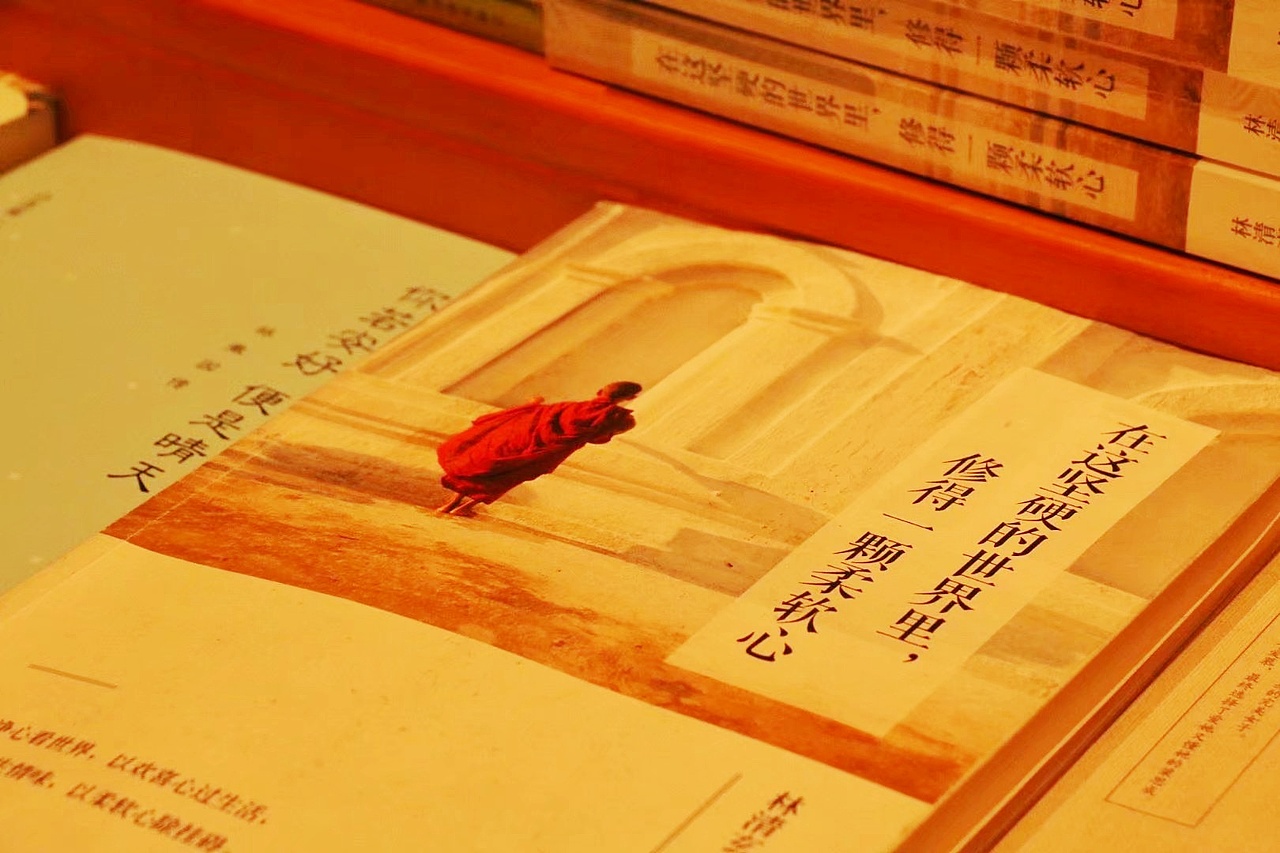 在这坚硬的世界里，
修得一颗柔软心
林清
心看世界，以欢喜心过生活，
情味，以柔软心除挂碍
你若安好
便是晴天
在这坚硬的世界里，
修得一颗柔软心
林清
修得一颗柔软心
林清